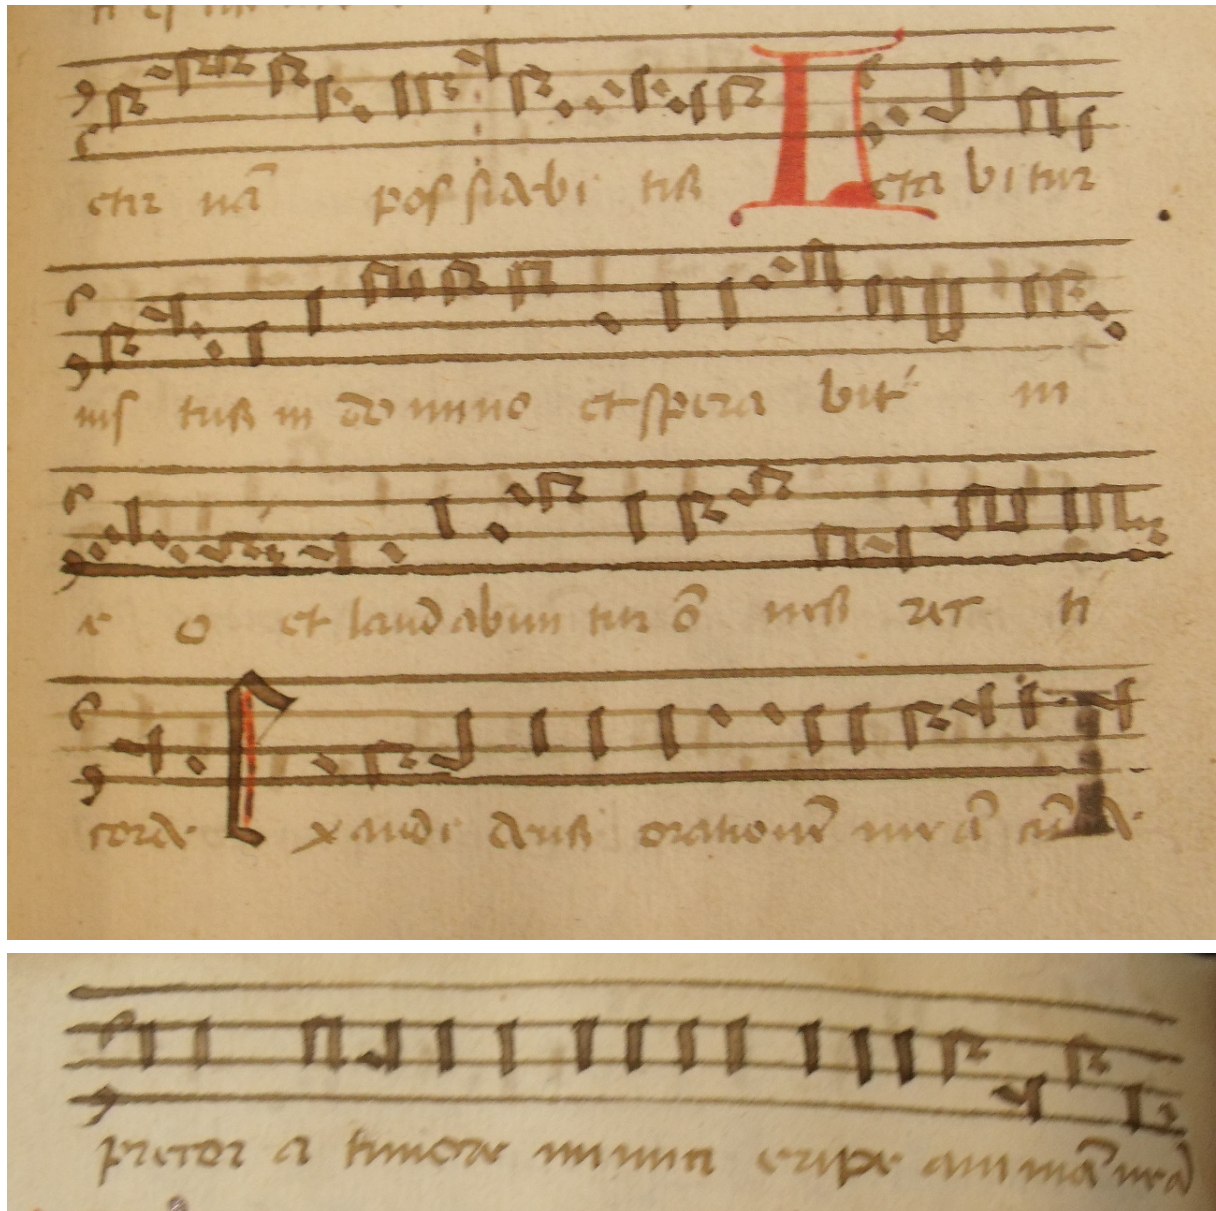 etir nā possidebi tis Letabitur
ius tus in domino et spera bit' in
e o et laudabun tur ō nes rec ti
corde Exaudi deus orationē me ā cū de
precor a timore inimici eripe animā meā